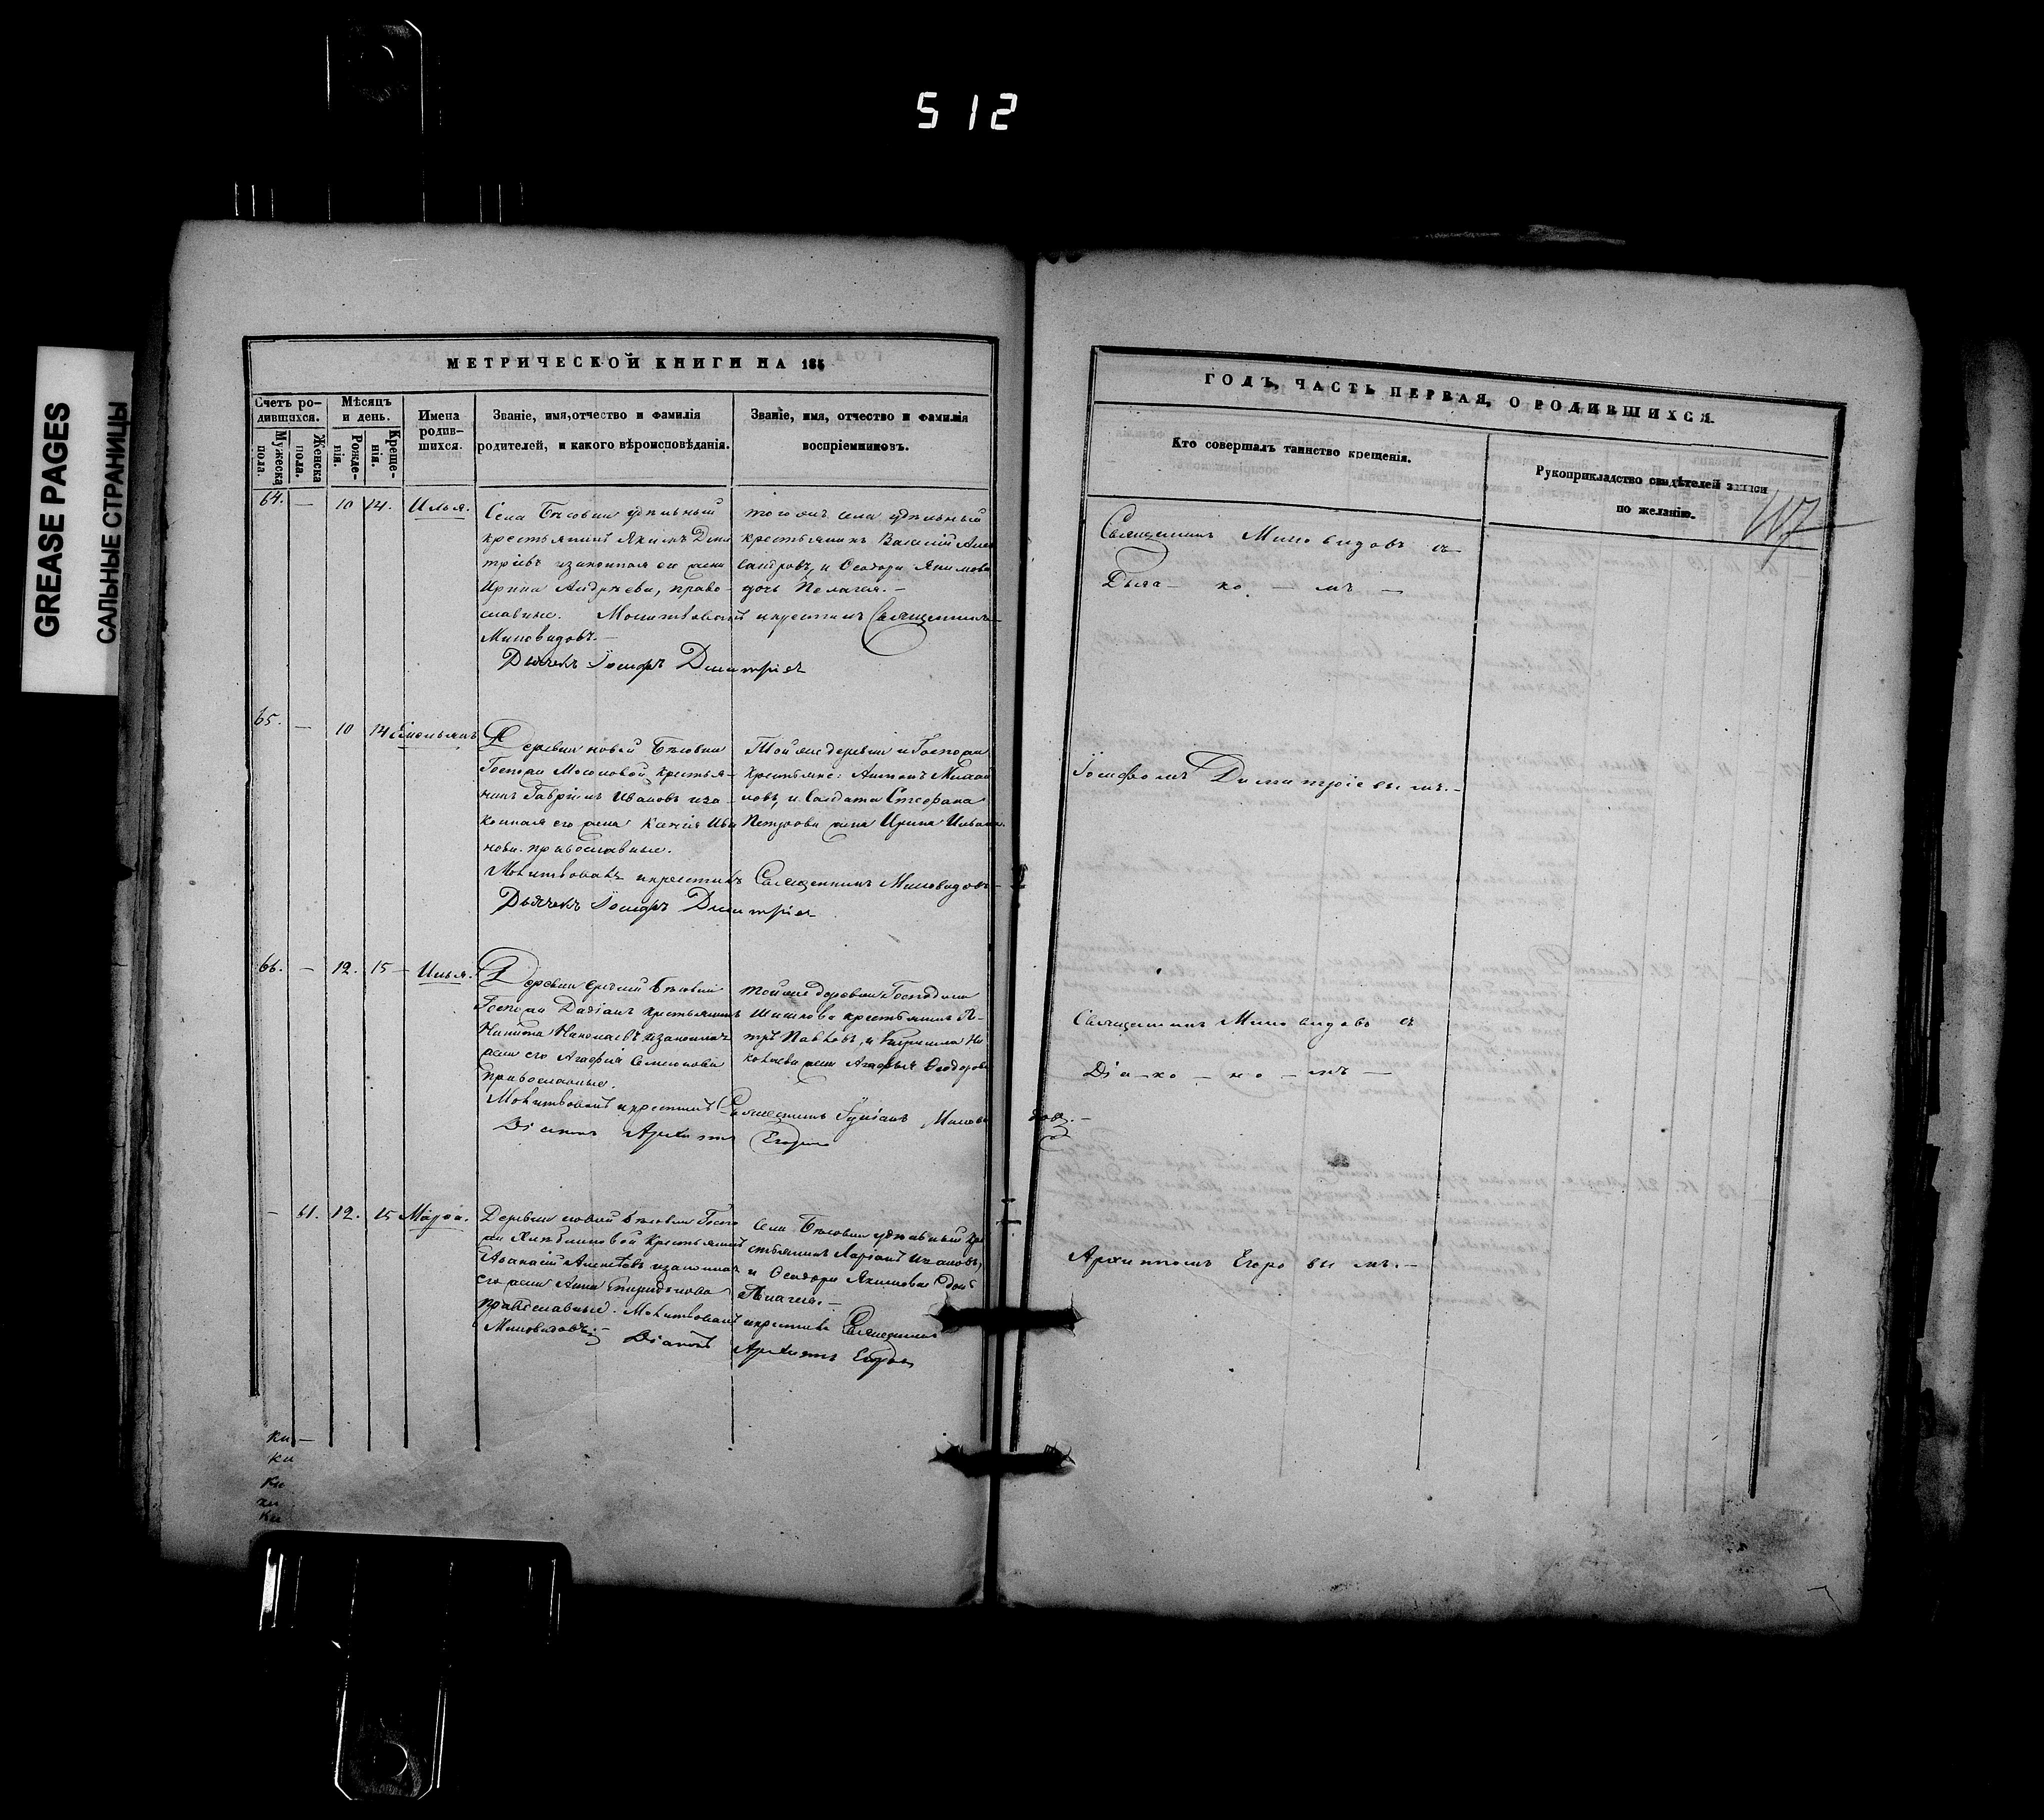 512
GREASE PAGES
САЛЬНЫЕ СТРАНИЦЫ
МЕТРИЧЕСКОЙ КНИГИ НА 185
Счетъ родившихся.
Мѣсяцъ и день.
Имена родив-
шихся.
Званіе, имя, отчество и фамилія
родителей, и какого вѣроисповѣданія.
Званіе, имя, отчество и фамилія
воспріемниковъ.
Мужеска пола.
Женска пола.
Рожде-
нія.
Креще-
нія.
64. — 10 14. Илья.
Села удѣльный
крестьянинъ Якимъ Дми
тріевъ и законная его жена
Ирина Андрѣева, право-
славные. Молитвовалъ и крестилъ Священникъ
Миловидовъ.—
Дьячекъ Іосифъ Димитріев
того же села удѣльный
крестьянинъ Василій Алек
сандровъ, и Ѳеодора Якимова
дочь Пелагея.—
65. — 10 14 Емельянъ
Деревни новой
Госпожи Мосоловой, крестья-
нинъ Гавріилъ Ивановъ и за-
конная его жена Ксенія Ива
нова. православные.
Молитвовалъ и крестилъ Священникъ Миловидовъ—
Дьячекъ Іосифъ Димитріев
Той же деревни и Госпожи
крестьяне: Антонъ Михай
ловъ, и Солдата Стефана
Петрова жена Ирина
66. — 12. 15 — Илья.
Деревни
Госпожи крестьянинъ
Никита Николаевъ и законная
жена его Агафія Семенова
православные.
Молитвовалъ и крестилъ Священникъ Миловидовъ.—
Діаконъ Архипъ Егоров
той же деревни Господина
Шишкова крестьянинъ Пе-
тръ Павловъ, и Ни
колаева жена Агафья Ѳеодорова
— 61. 12. 15 Марѳа.
Деревни новой Госпо
жи крестьянинъ
Аѳанасій Алексѣевъ и законная
его жена Анна Спиридонова
православные. Молитвовалъ и крестилъ Священникъ
Миловидовъ.— Діаконъ Архипъ Егоров
Села удѣльный кре
стьянинъ Ларіонъ Ивановъ,
и Ѳеодора Якимова дочь
Пелагея.—
ки —
ки
ки
ки
ки
ГОДЪ, ЧАСТЬ ПЕРВАЯ, О РОДИВШИХСЯ.
Кто совершалъ таинство крещенія.
Рукоприкладство свидѣтелей записи
по желанію.
Священникъ Миловидовъ съ
Дьяч— ко — мъ —
Іосифомъ Димитріевымъ.—
Священникъ Миловидовъ съ
Діа—ко—но—мъ —
Архипомъ Егоровымъ.—